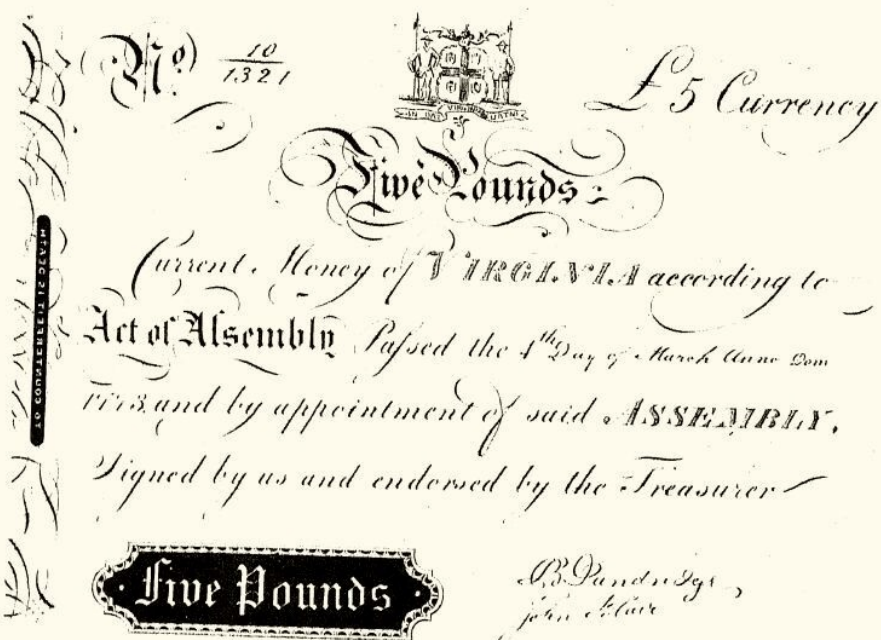 No. 10
1321
£5 Currency
EN DAT VIRGINIA
Five Pounds
Current Money of VIRGINIA according to
Act of Assembly Paſsed the 4th Day of March Anno Dom
1773 and by appointment of said ASSEMBLY.
Signed by us and endorsed by the Treasurer
TO COUNTERFEIT IS DEATH
Five Pounds
B. Dandridge
John Blair